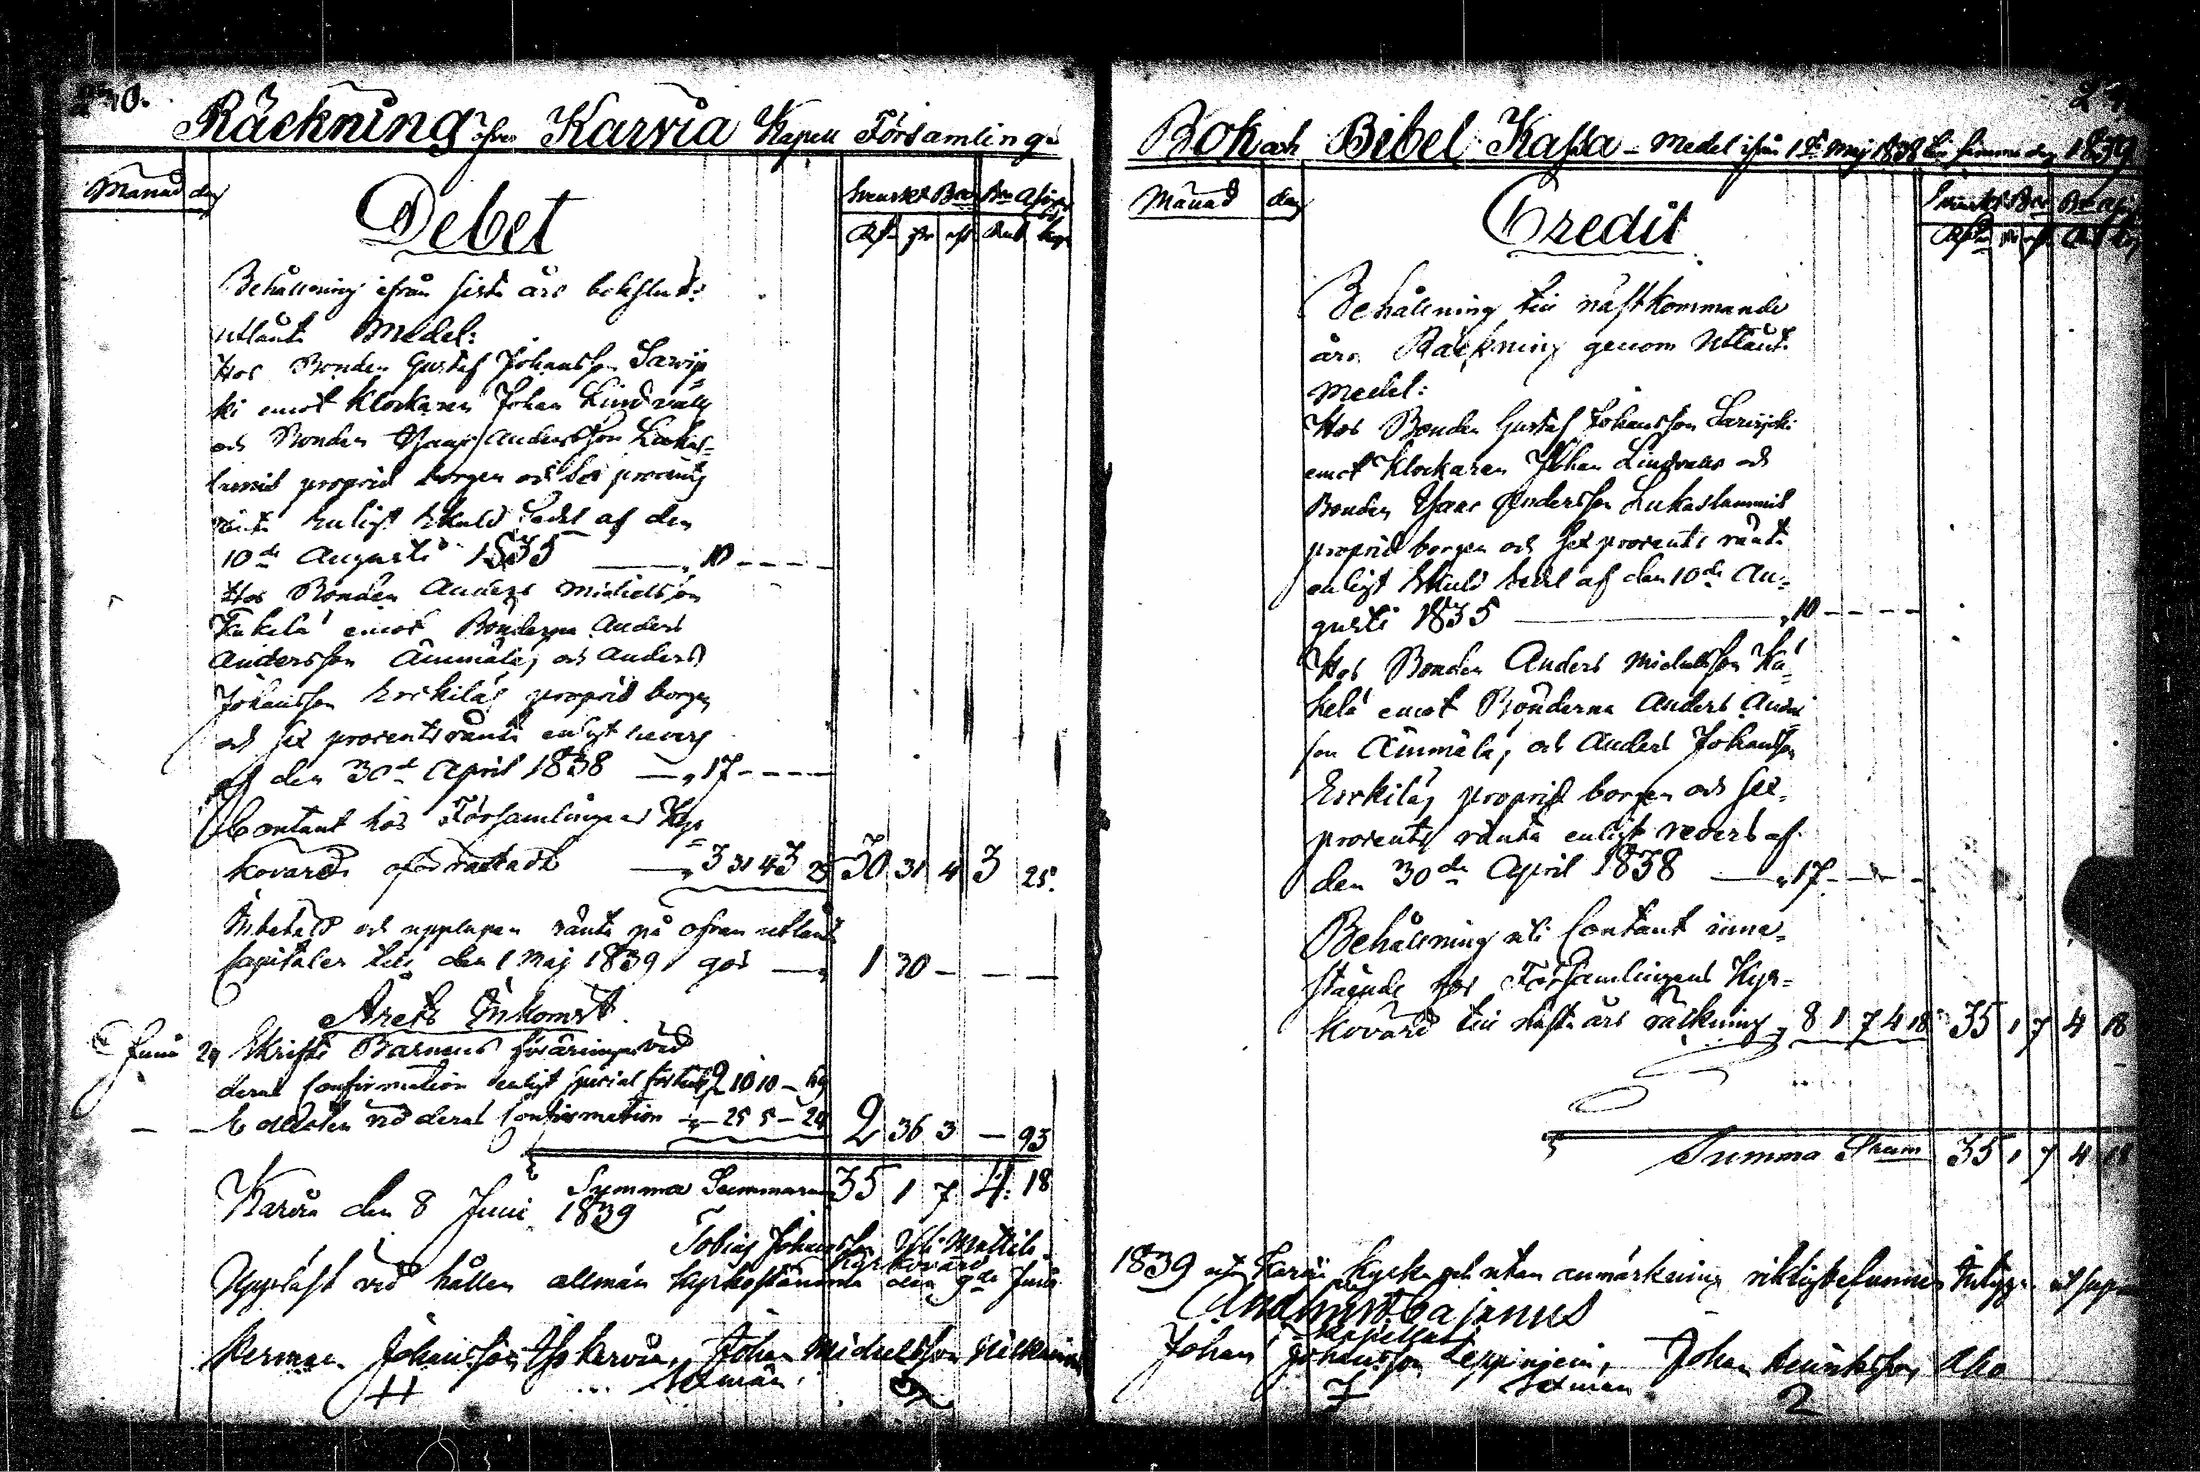 Räckning öfver Karvia Kapell Församlings
Månad dag
Debet
Behållning ifrån sista års bokslut:
utlånte Medel:
Hos Bonden Gustaf Johansson Sarvij=
ki emot Klockaren Johan Lindvalls
och Bonden Isaac Andersson Lukas=
lammis proprie borgen och sex procents
ränta enligt Skuld Sedel af den
10de Augusti 1835 — 10 - - - -
Hos Bonden Anders Michelsson
Kakelä emot Bönderne Anders
Andersson Ämmälä, och Anders
Johansson Erkiläs proprie borgen
och sex procents ränta enligt revers
af den 30de April 1838 — 17 - - - -
Contant hos Församlingens Kyr=
kovärd oförräntadt — 3 31 4 3 25 30 31 4 3 25.
Inbetald och upplupen ränta på ofvan utlånte
Capitaler till den 1 Maj 1839 gör — 1 30 — — —
Årets Inkomst.
Junii 24 Skrifte Barnens föräringar vid
deras Confirmation enligt special förteckn 2 10 10 — 69
— — Collecten vid deras Confirmation — 25 5 — 24 2 36 3 — 93
Summa Summarum 35 1 7 4: 18
Karvia den 8 Junii 1839
Tobias Johansson Yli-Mattila
Kyrkovärd
Uppläst vid hållen allmän Kyrkostämma den 9de Junii
Herman Johansson Ytskarvia, Johan Michelsson
Sexmän.
Bok och Bibel Kassa - Medel ifrån 1de Maj 1838 till samma dag 1839
Månad dag
Credit
Behållning till nästkommande
års Räkning genom utlånte
Medel:
Hos Bonden Gustaf Johansson Sarvijcki
emot Klockaren Johan Lindvalls och
Bonden Isaac Andersson Lukaslammis
proprie borgen och sex procents ränta
enligt Skuld Sedel af den 10de Au=
gusti 1835 — 10 - - - -
Hos Bonden Anders Michelsson Ka=
kelä emot Bönderne Anders Anders
son Ämmälä, och Anders Johansson
Erkiläs proprie borgen och sex
procents ränta enligt revers af
den 30de April 1838 — 17 - - - -
Behållning uti Contant inne=
stående hos Församlingens Kyr=
kovärd till nästa års räkning 8 1 7 4 18 35 1 7 4 18
Summa Sum 35 1 7 4 18
1839 uti Karvia Kyrka och utan anmärkning riktig befunnen
And: Cajanus
Kapellan
Johan Johansson Leppinjemi, Johan Henriksson Aho
7 Sexmän 2